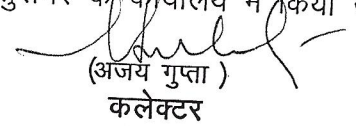 के कार्यालय में किया
(अजय गुप्ता )
कलेक्टर